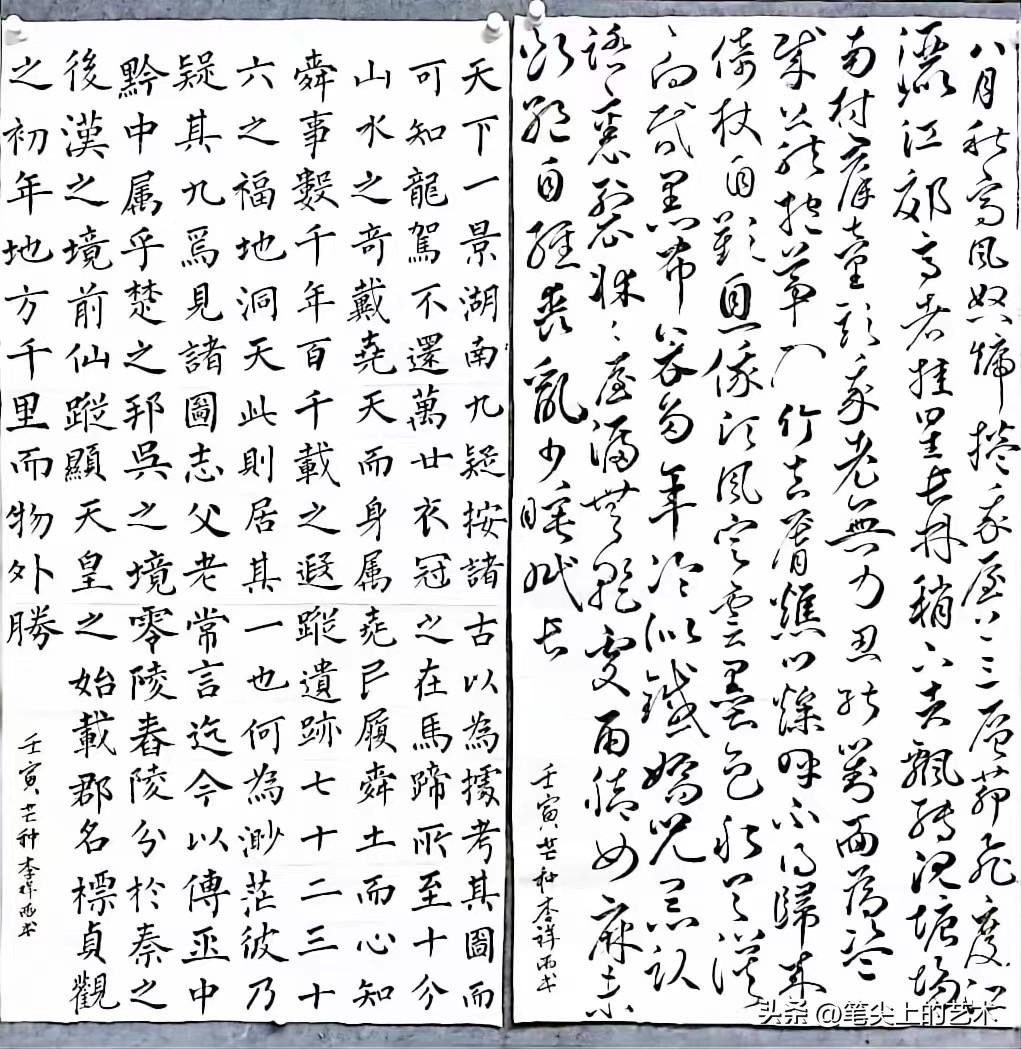 八月秋高風怒號捲我屋上三層茆飛度江
灑江郊高者挂罥長林梢下者飄轉沈塘坳
南村群童欺我老無力忍能對面為盜
賊公然抱茅入竹去脣焦口燥呼不得歸來
倚杖自歎息俄頃風定雲墨色秋天漠
向昏黑布衾多年冷似鐵嬌兒惡臥
踏裏裂牀〻屋漏無乾處雨脚如麻未
斷絕自經喪亂少睡眠長
壬寅芒种李祥雨书
天下一景湖南九疑按諸古以為據考其圖而
可知龍駕不還萬廿衣冠之在馬蹄所至十分
山水之奇戴堯天而身属堯戶履舜土而心知
舜事數千年百千載之遐蹤遺跡七十二三十
六之福地洞天此則居其一也何為渺茫彼乃
疑其九焉見諸圖志父老常言迄今以傳巫中
黔中属乎楚之邦吳之境零陵舂陵分於秦之
後漢之境前仙蹤顯天皇之始載郡名標貞觀
之初年地方千里而物外勝
壬寅芒种李祥雨书
头条 @笔尖上的艺术